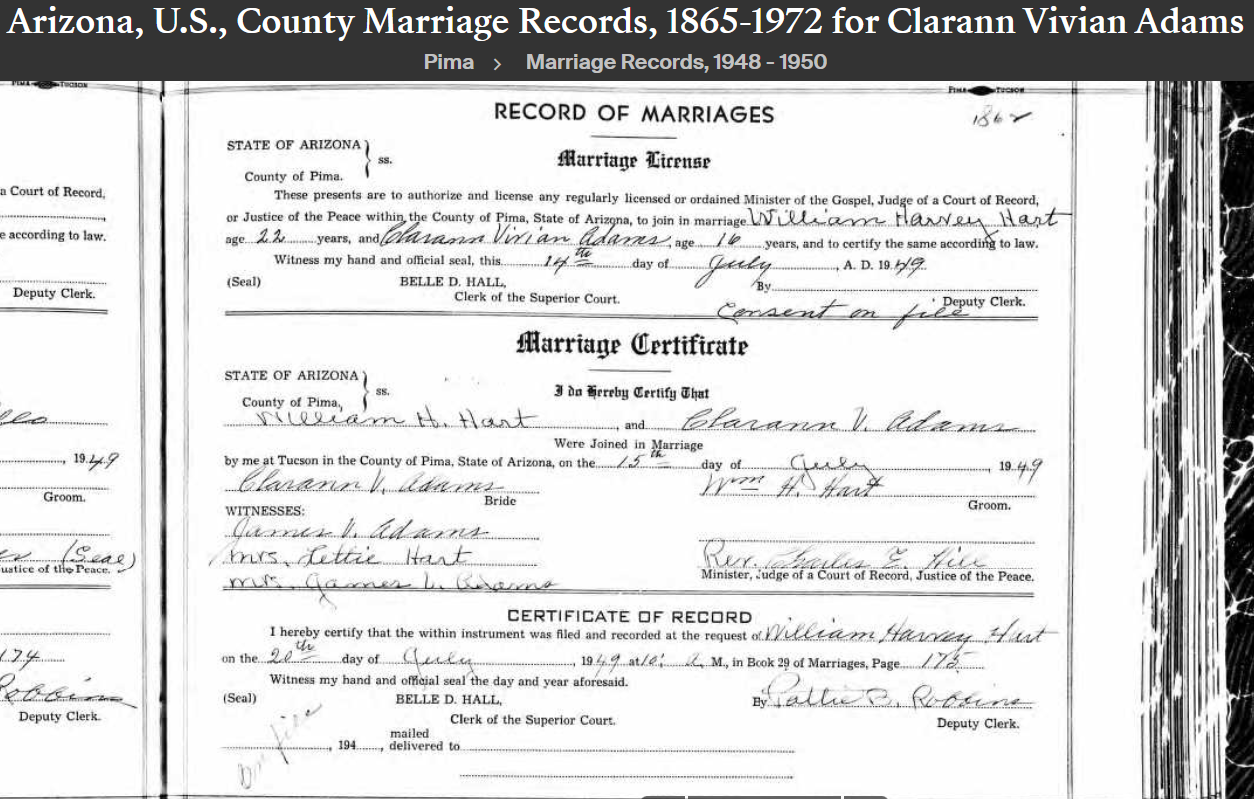 Arizona, U.S., County Marriage Records, 1865-1972 for Clarann Vivian Adams
Pima > Marriage Records, 1948 - 1950
PIMA TUCSON
PIMA TUCSON
RECORD OF MARRIAGES
1862
STATE OF ARIZONA } ss.
County of Pima.
Marriage License
These presents are to authorize and license any regularly licensed or ordained Minister of the Gospel, Judge of a Court of Record,
or Justice of the Peace within the County of Pima, State of Arizona, to join in marriage William Harvey Hart
age 22 years, and Clarann Vivian Adams, age 16 years, and to certify the same according to law.
Witness my hand and official seal, this 14th day of July, A. D. 1949
(Seal) BELLE D. HALL, By
Clerk of the Superior Court. Deputy Clerk.
Consent on file
Marriage Certificate
STATE OF ARIZONA } ss.
County of Pima,
I do Hereby Certify That
William H. Hart, and Clarann V. Adams
Were Joined in Marriage
by me at Tucson in the County of Pima, State of Arizona, on the 15th day of July, 1949
Clarann V. Adams Wm H. Hart
Bride Groom.
WITNESSES:
James V. Adams
Mrs. Lettie Hart Rev. Charles E. Hill
Mrs. James V. Adams Minister, Judge of a Court of Record, Justice of the Peace.
CERTIFICATE OF RECORD
I hereby certify that the within instrument was filed and recorded at the request of William Harvey Hart
on the 20th day of July, 1949 at 10: A. M., in Book 29 of Marriages, Page 175
Witness my hand and official seal the day and year aforesaid.
(Seal) BELLE D. HALL, By Pattie B. Robbins
Clerk of the Superior Court. Deputy Clerk.
mailed
, 194 , delivered to
on file
a Court of Record,
e according to law.
Deputy Clerk.
, 1949
Groom.
(Seal)
ustice of the Peace.
174
Robbins
Deputy Clerk.